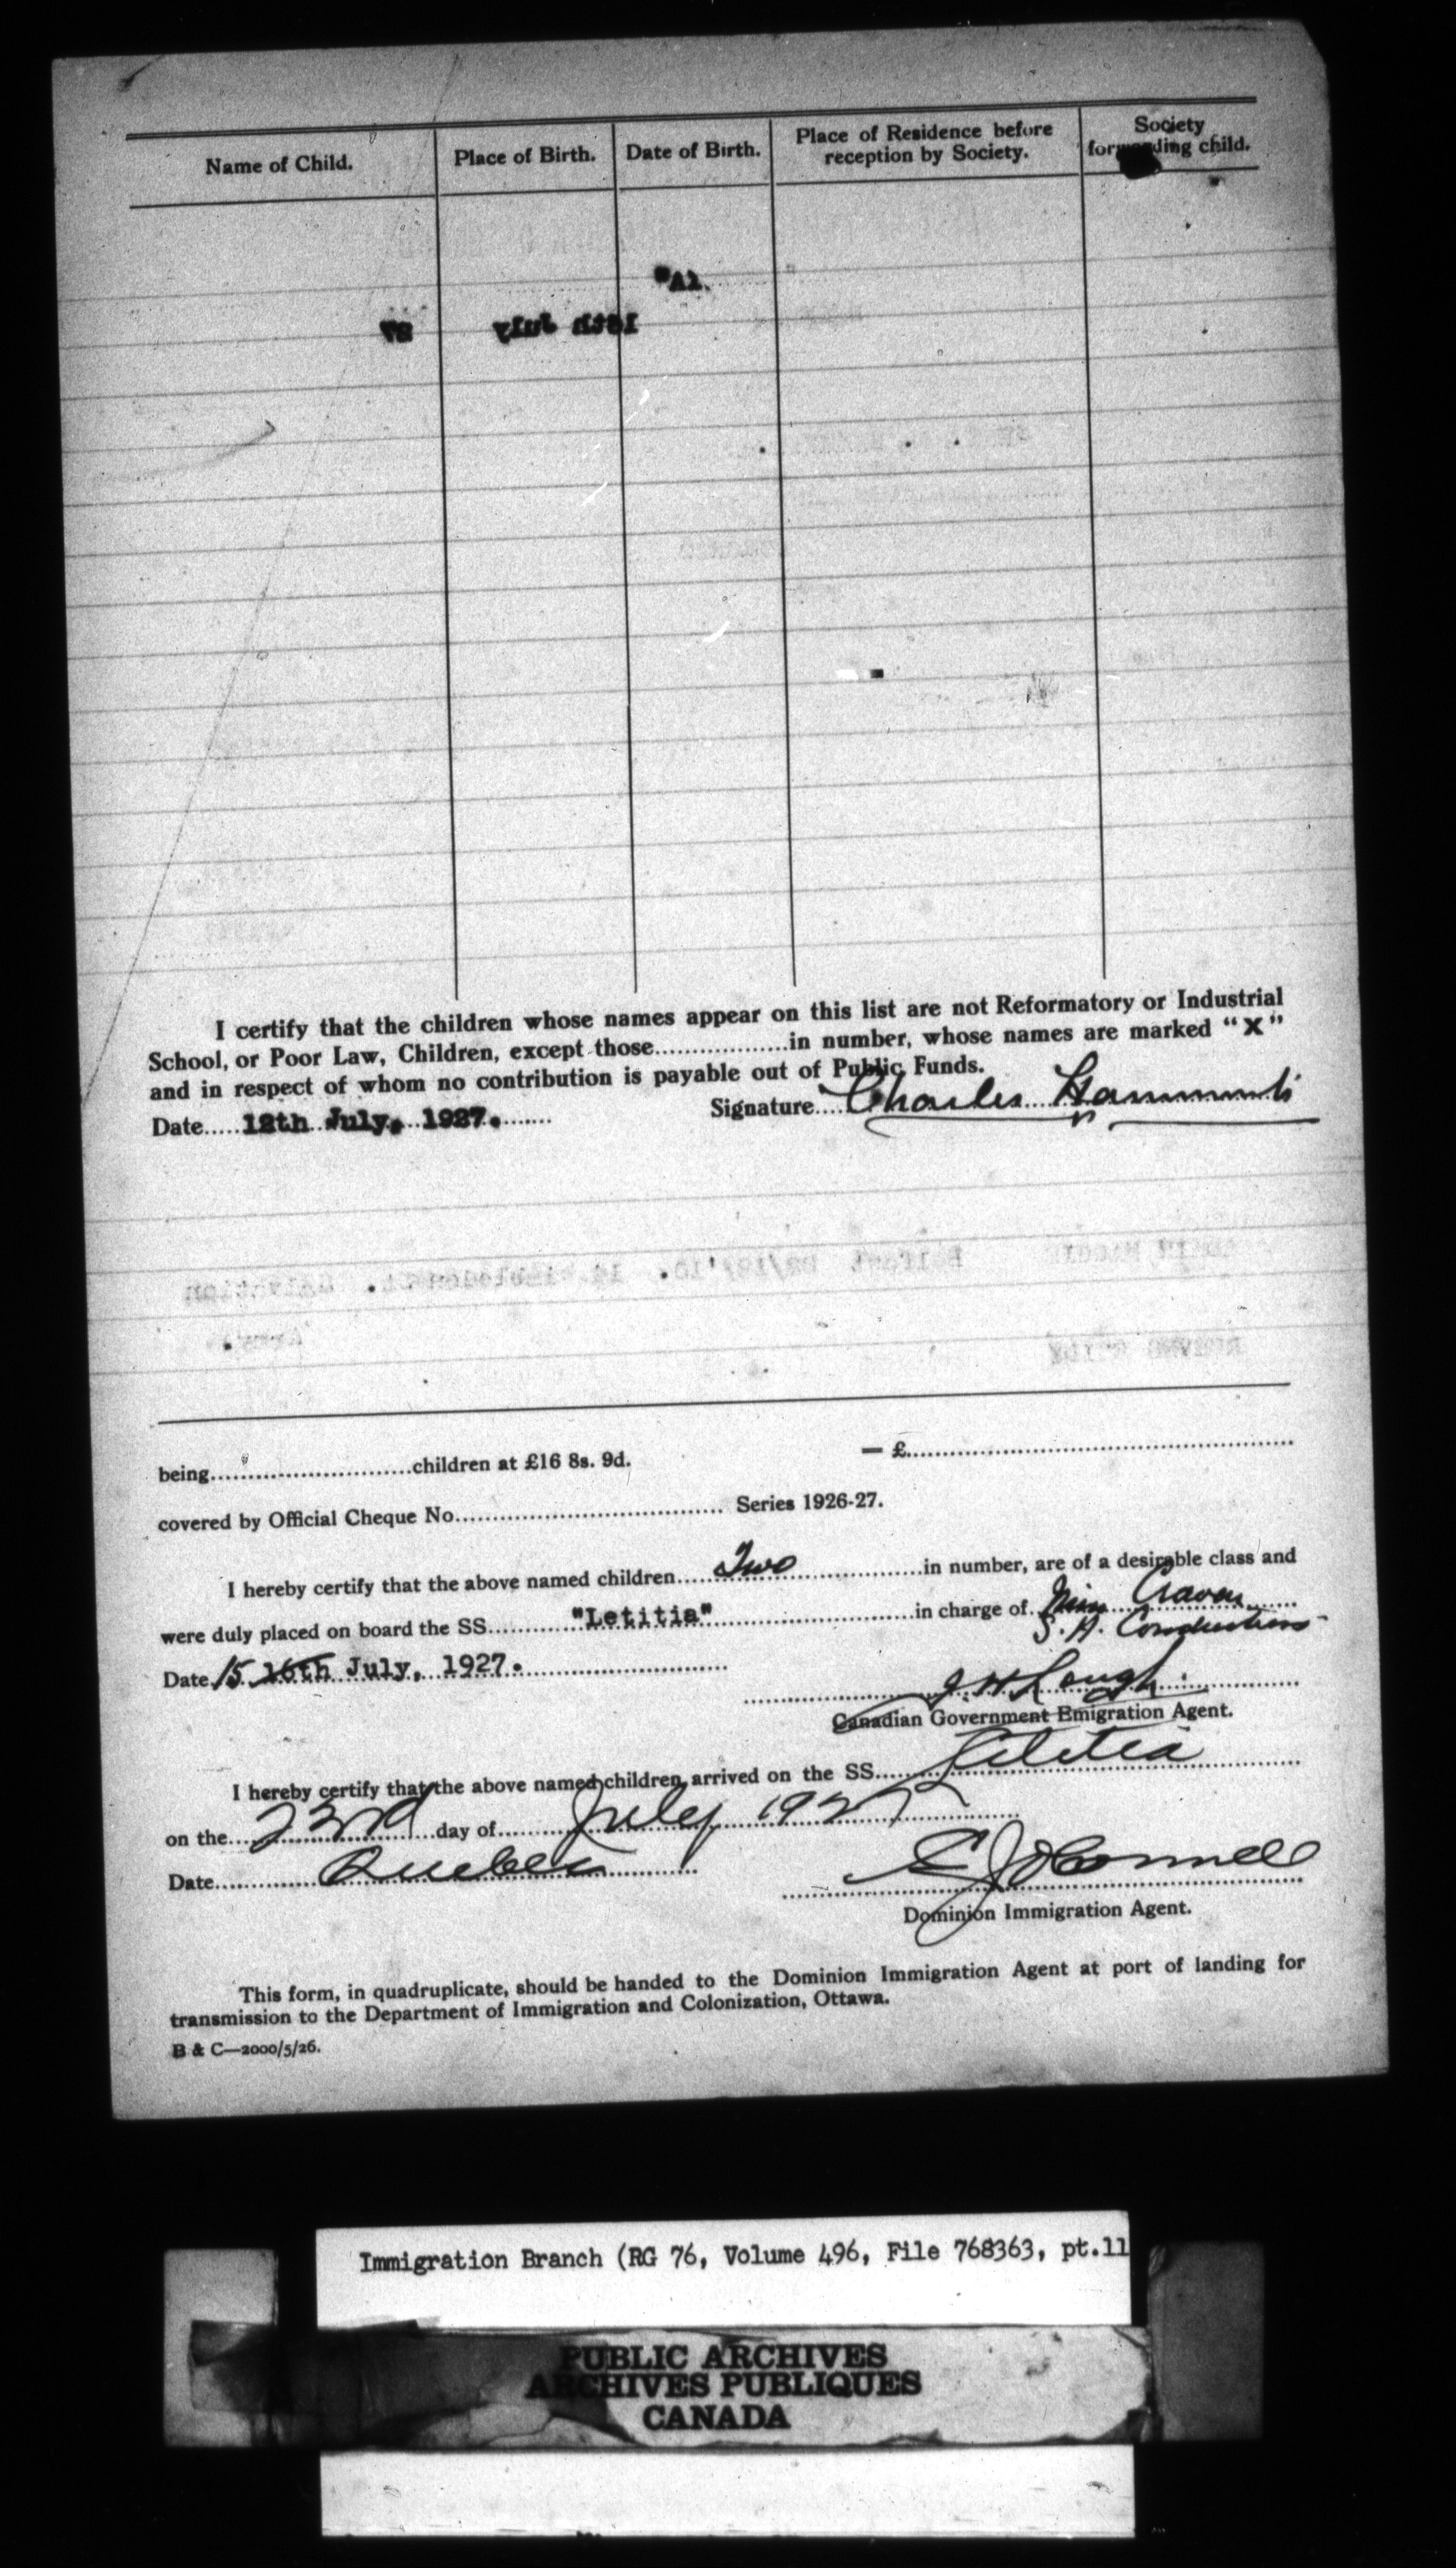 Name of Child.
Place of Birth.
Date of Birth.
Place of Residence before
reception by Society.
Society
forwarding child.
I certify that the children whose names appear on this list are not Reformatory or Industrial
School, or Poor Law, Children, except those..................in number, whose names are marked “X”
and in respect of whom no contribution is payable out of Public Funds.
Date.....12th July, 1927.......
Signature....Charles
being...........................children at £16 8s. 9d.
— £......................................................
covered by Official Cheque No..................................... Series 1926-27.
I hereby certify that the above named children.....Two....................in number, are of a desirable class and
were duly placed on board the SS............"Letitia"...........................in charge of Miss Craven
S. A. Conductress
Date 15 16th July, 1927.
Canadian Government Emigration Agent.
I hereby certify that the above named children arrived on the SS....Letitia
on the....23rd....day of........July 1927
Date............Quebec
Dominion Immigration Agent.
This form, in quadruplicate, should be handed to the Dominion Immigration Agent at port of landing for
transmission to the Department of Immigration and Colonization, Ottawa.
B & C—2000/5/26.
Immigration Branch (RG 76, Volume 496, File 768363, pt.11
PUBLIC ARCHIVES
ARCHIVES PUBLIQUES
CANADA